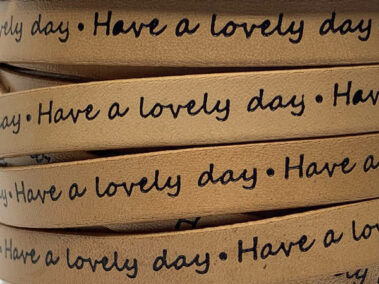 lovely day • Have a lovely day
day • Have a lovely day • Have
• Have a lovely day • Have a
• Have a lovely day • Have a